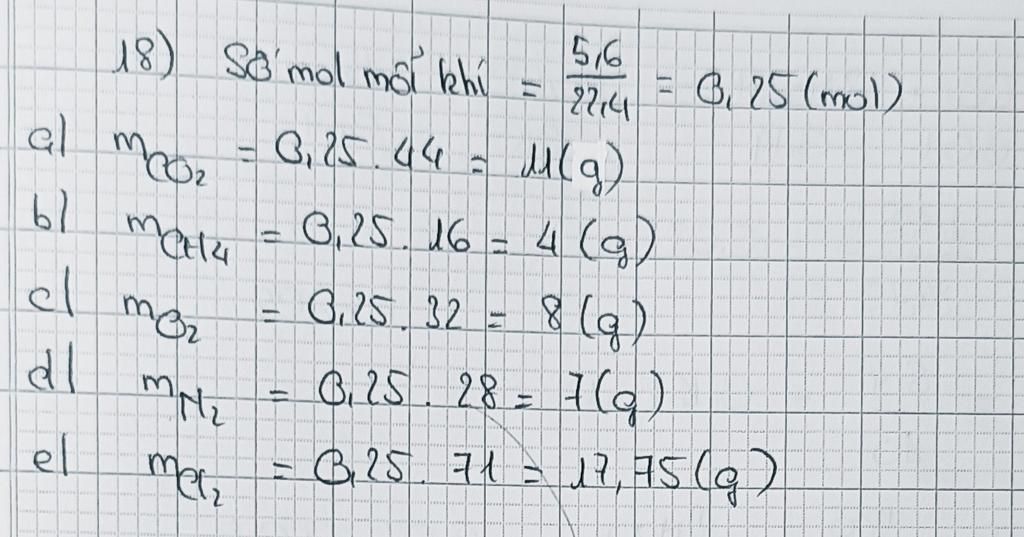 18) Số mol mỗi khí = 5,6/22,4 = 0,25 (mol)
a) mCO₂ = 0,25 . 44 = 11 (g)
b) mCH₄ = 0,25 . 16 = 4 (g)
c) mO₂ = 0,25 . 32 = 8 (g)
d) mN₂ = 0,25 . 28 = 7 (g)
e) mCl₂ = 0,25 . 71 = 17,75 (g)